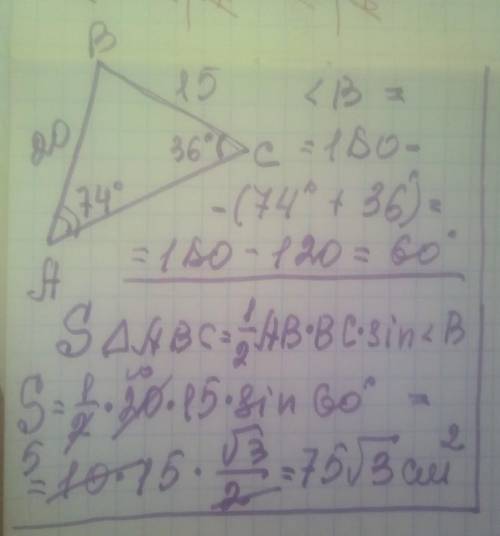 B
15
<B =
20
36°
C
= 180 -
74°
- (74° + 36°) =
A
= 180 - 120 = 60°
S ΔABC = 1/2 AB · BC · sin < B
S = 1/2 · 20 · 15 · sin 60° =
10
5
= 10 · 15 · √3/2 = 75√3 см²